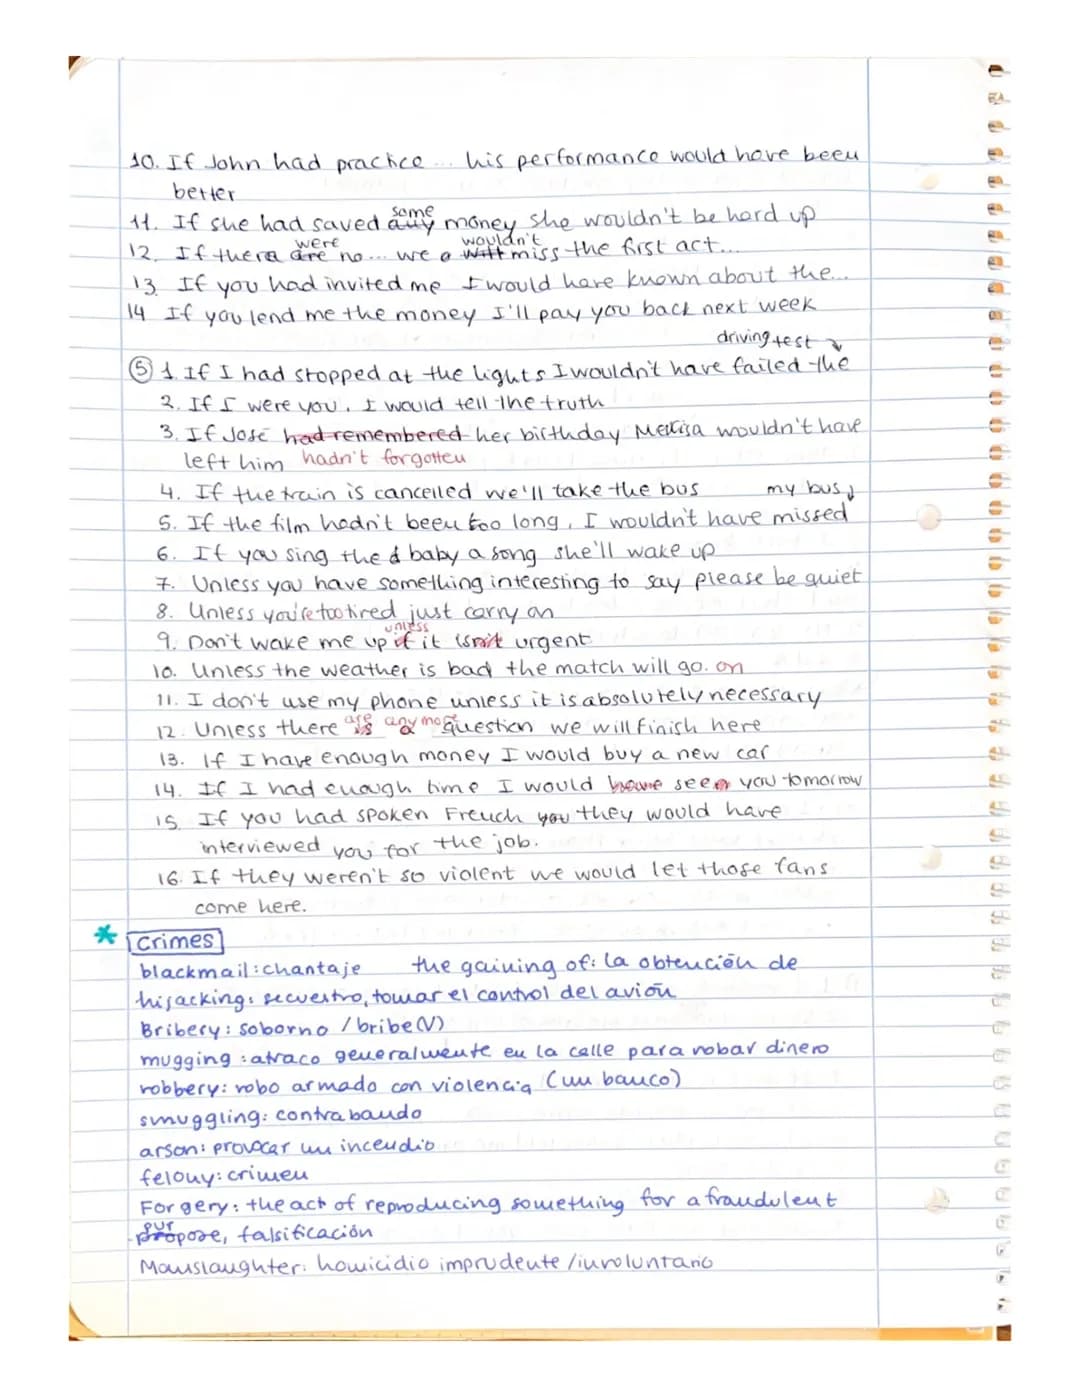 10. If John had practice ... his performance would have been
better
11. If she had saved any some money she wouldn't be hard up
12. If there are were no ... we a will wouldn't miss the first act...
13 If you had invited me I would have known about the...
14 If you lend me the money I'll pay you back next week
driving test
5 1. If I had stopped at the lights I wouldn't have failed the
2. If I were you, I would tell the truth
3. If José had remembered her birthday wouldn't have
left him hadn't forgotten
4. If the train is cancelled we'll take the bus my bus
5. If the film hadn't been too long, I wouldn't have missed
6. If you sing the baby a song she'll wake up
7. Unless you have something interesting to say please be quiet
8. Unless you're too tired just carry on
9. Don't wake me up if unless it isn't urgent
10. Unless the weather is bad the match will go. on
11. I don't use my phone unless it is absolutely necessary
12. Unless there is are a any more question we will finish here
13. If I have enough money I would buy a new car
14. If I had enough time I would have seen you tomorrow
15 If you had spoken French you they would have
interviewed you for the job.
16. If they weren't so violent we would let those fans
come here.
* Crimes
blackmail: chantaje the gaining of: la obtención de
hijacking: secuestro, tomar el control del avión
Bribery: soborno / bribe (V)
mugging: atraco generalmente en la calle para robar dinero
robbery: robo armado con violencia (un banco)
smuggling: contrabando
arson: provocar un incendio
felony: crimen
Forgery: the act of reproducing something for a fraudulent
propose, pur falsificación
Manslaughter: homicidio imprudente / involuntario